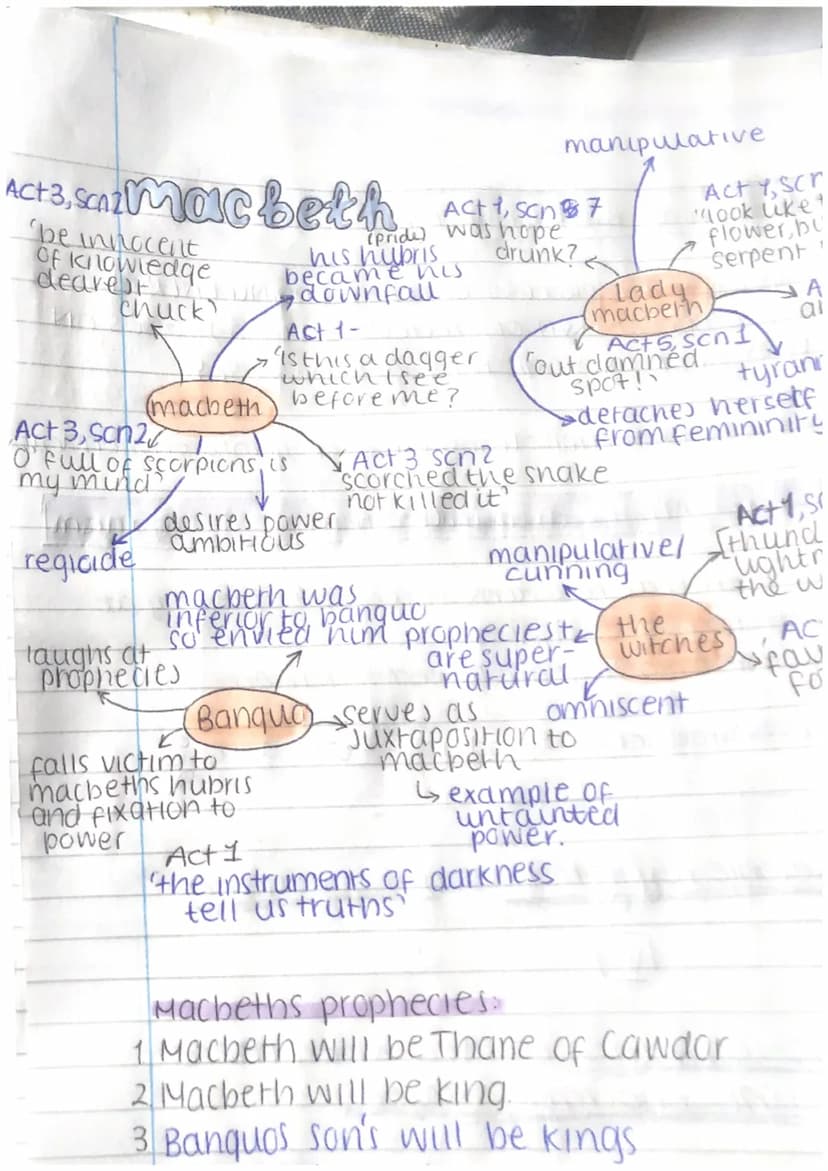 macbeth
Act3, scn2
'be innocent
of knowledge
dearest
chuck'
(pride)
his hubris
became his
downfall
Act 1-
'is this a dagger
which I see
before me?
macbeth
Act 3, scn2
O' full of scorpions is
my mind'
Act 3 scn2
scorched the snake
not killed it'
desires power
ambitious
regicide
manipulative
Act 1, scn 7
was hope
drunk?
Act 1, scn
"look like
flower, bu
serpent
lady
macbeth
Act 5, scn 1
'out damned
spot!'
A
tyrann
detaches herself
from femininity
manipulative/
cunning
Act 1, s
thund
lightn
the w
the
witches
prophecies
are super-
natural
omniscent
AC
fo
macbeth was
inferior to banquo
so envied him
laughs at
prophecies
Banquo
serves as
juxtaposition to
macbeth
↳ example of
untainted
power.
falls victim to
macbeths hubris
and fixation to
power
Act 1
'the instruments of darkness
tell us truths'
Macbeths prophecies:
1 Macbeth will be Thane of Cawdor
2 Macbeth will be king.
3 Banquos son's will be kings